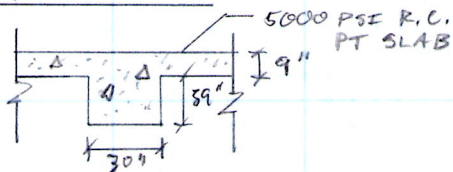 5000 PSI R.C.
PT SLAB
9"
39"
30"